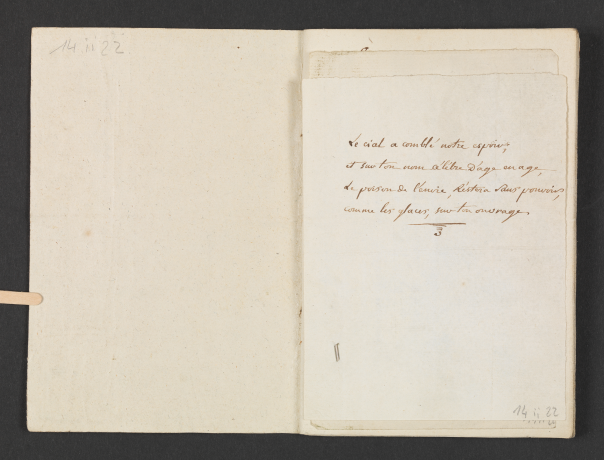 14 ii 22
Le ciel a comblé notre espoir,
et sur ton nom célèbre d'age en age,
Le poison de l'envie, Restera Sans pouvoir,
comme les glaces, sur ton ouvrage
3
14 ii 22